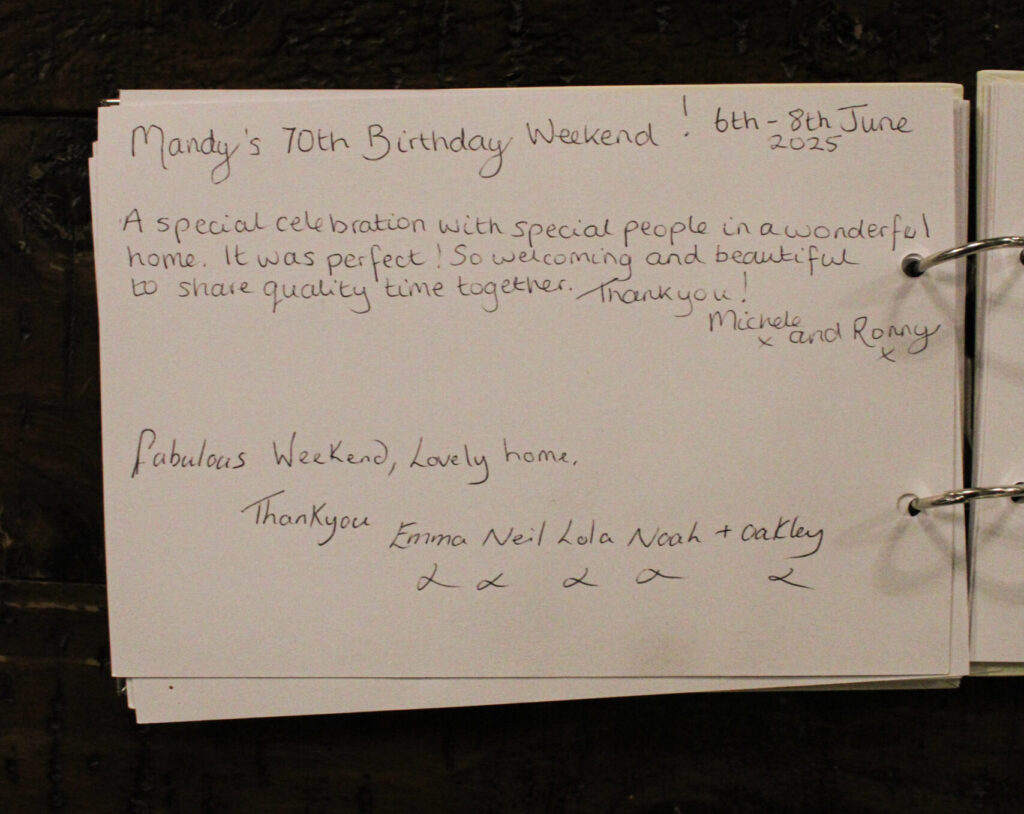 Mandy's 70th Birthday Weekend ! 6th - 8th June
2025
A special celebration with special people in a wonderful
home. It was perfect! So welcoming and beautiful
to share quality time together. Thankyou!
Michele and Ronny
x x
Fabulous Weekend, Lovely home.
Thankyou Emma Neil Lola Noah + Oakley
x x x x x